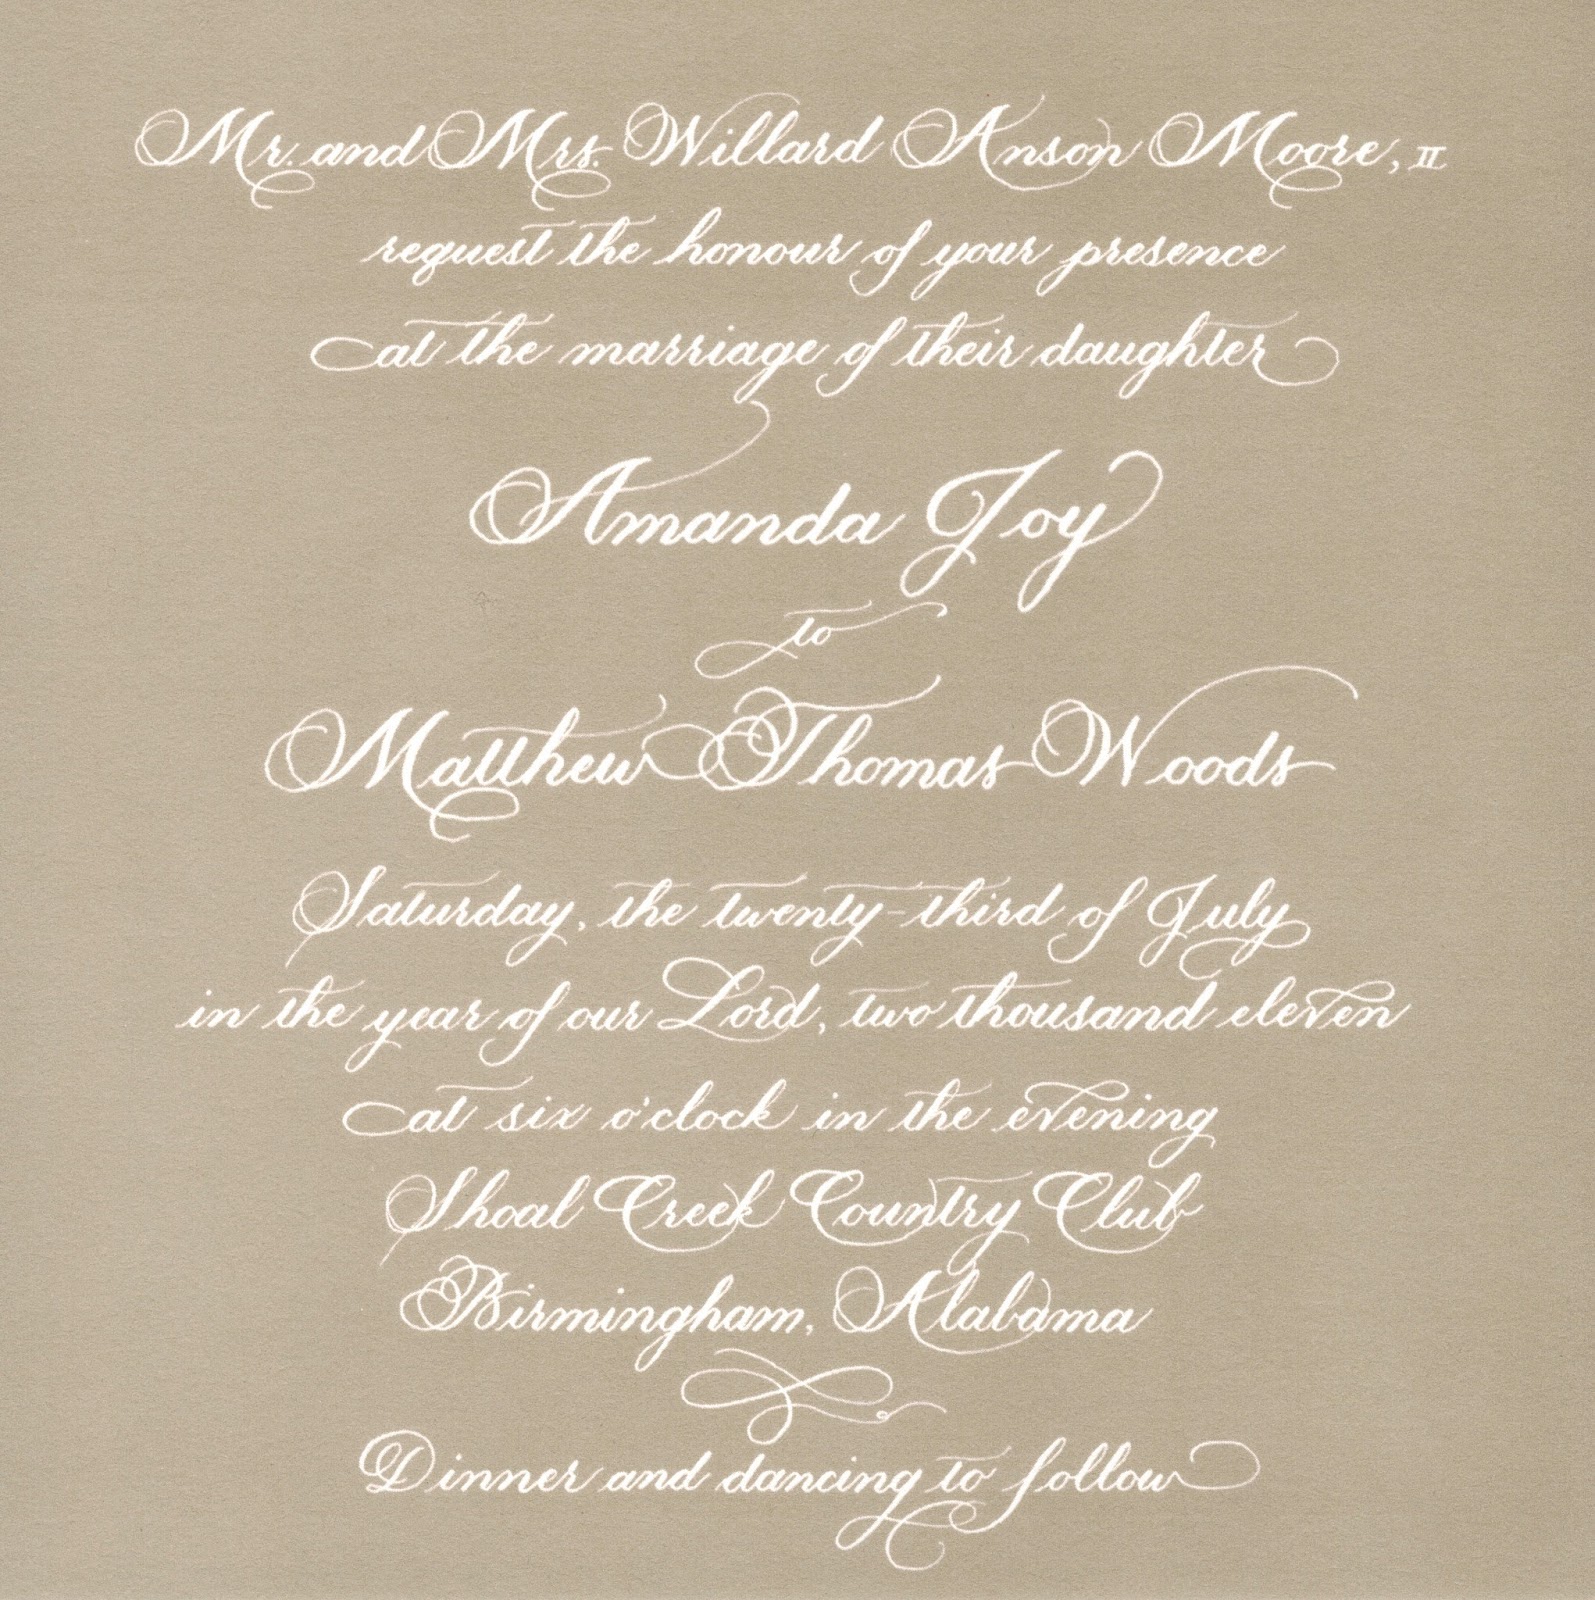 Mr. and Mrs. Willard Anson Moore, II
request the honour of your presence
at the marriage of their daughter
Amanda Joy
to
Matthew Thomas Woods
Saturday, the twenty-third of July
in the year of our Lord, two thousand eleven
at six o'clock in the evening
Shoal Creek Country Club
Birmingham, Alabama
Dinner and dancing to follow